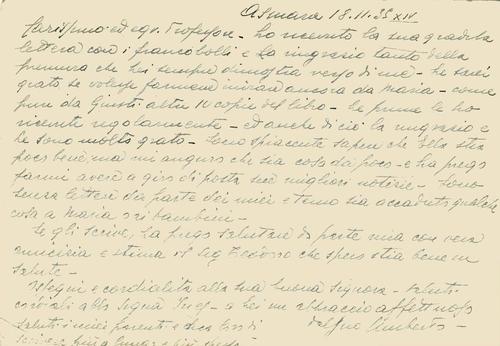 Asmara 18.11.35 XIV
Carissimo ed egr. Professore - ho ricevuto la sua gradita
lettera con i francobolli e la ringrazio tanto della
premura che Lei sempre dimostra verso di me - Le sarei
grato se volesse farmene inviare ancora da Maria - come
pure da Giusti altre 10 copie del libro - Le prime le ho
ricevute regolarmente - ed anche di ciò la ringrazio e
Le sono molto grato - Sono spiacente sapere che Bela stia
poco bene, ma mi auguro che sia cosa da poco - e la prego
farmi avere a giro di posta sue migliori notizie - Sono
senza lettere da parte dei miei e temo sia accaduto qualche
cosa a Maria o ai bambini -
Se gli scrive, La prego salutare da parte mia con vera
amicizia e stima il Sig. che spero stia bene in
salute -
Ossequi e cordialità alla sua buona Signora - saluti
cordiali alla Signa - a Lei un abbraccio affettuoso
dal suo Umberto -
Saluti i miei parenti e dica loro di
scrivere più a lungo e più spesso